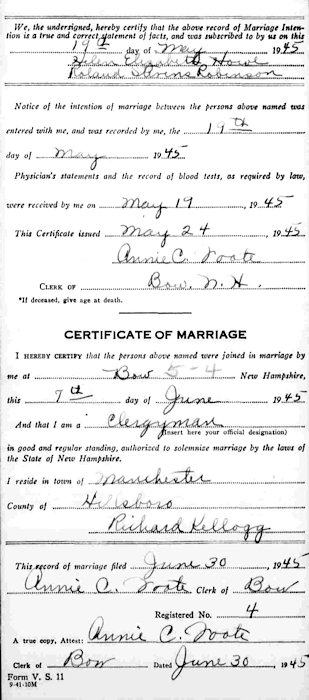 We, the undersigned, hereby certify that the above record of Marriage Inten-
tion is a true and correct statement of facts, and was subscribed to by us on this
19th day of May 1945
Helen Elizabeth Howe
Roland Stevens Robinson
Notice of the intention of marriage between the persons above named was
entered with me, and was recorded by me, the 19th
day of May 1945
Physician's statements and the record of blood tests, as required by law,
were received by me on May 19, 1945
This Certificate issued May 24, 1945
Annie C. Foote
CLERK OF Bow, N. H.
*If deceased, give age at death.
CERTIFICATE OF MARRIAGE
I HEREBY CERTIFY that the persons above named were joined in marriage by
me at Bow 5-4 New Hampshire,
this 7th day of June, 1945
And that I am a Clergyman
(Insert here your official designation)
in good and regular standing, authorized to solemnize marriage by the laws of
the State of New Hampshire.
I reside in town of Manchester
County of Hillsboro
Richard Kellogg
This record of marriage filed June 30, 1945
Annie C. Foote Clerk of Bow
Registered No. 4
A true copy, Attest: Annie C. Foote
Clerk of Bow Dated June 30, 1945
Form V. S. 11
9-41-10M